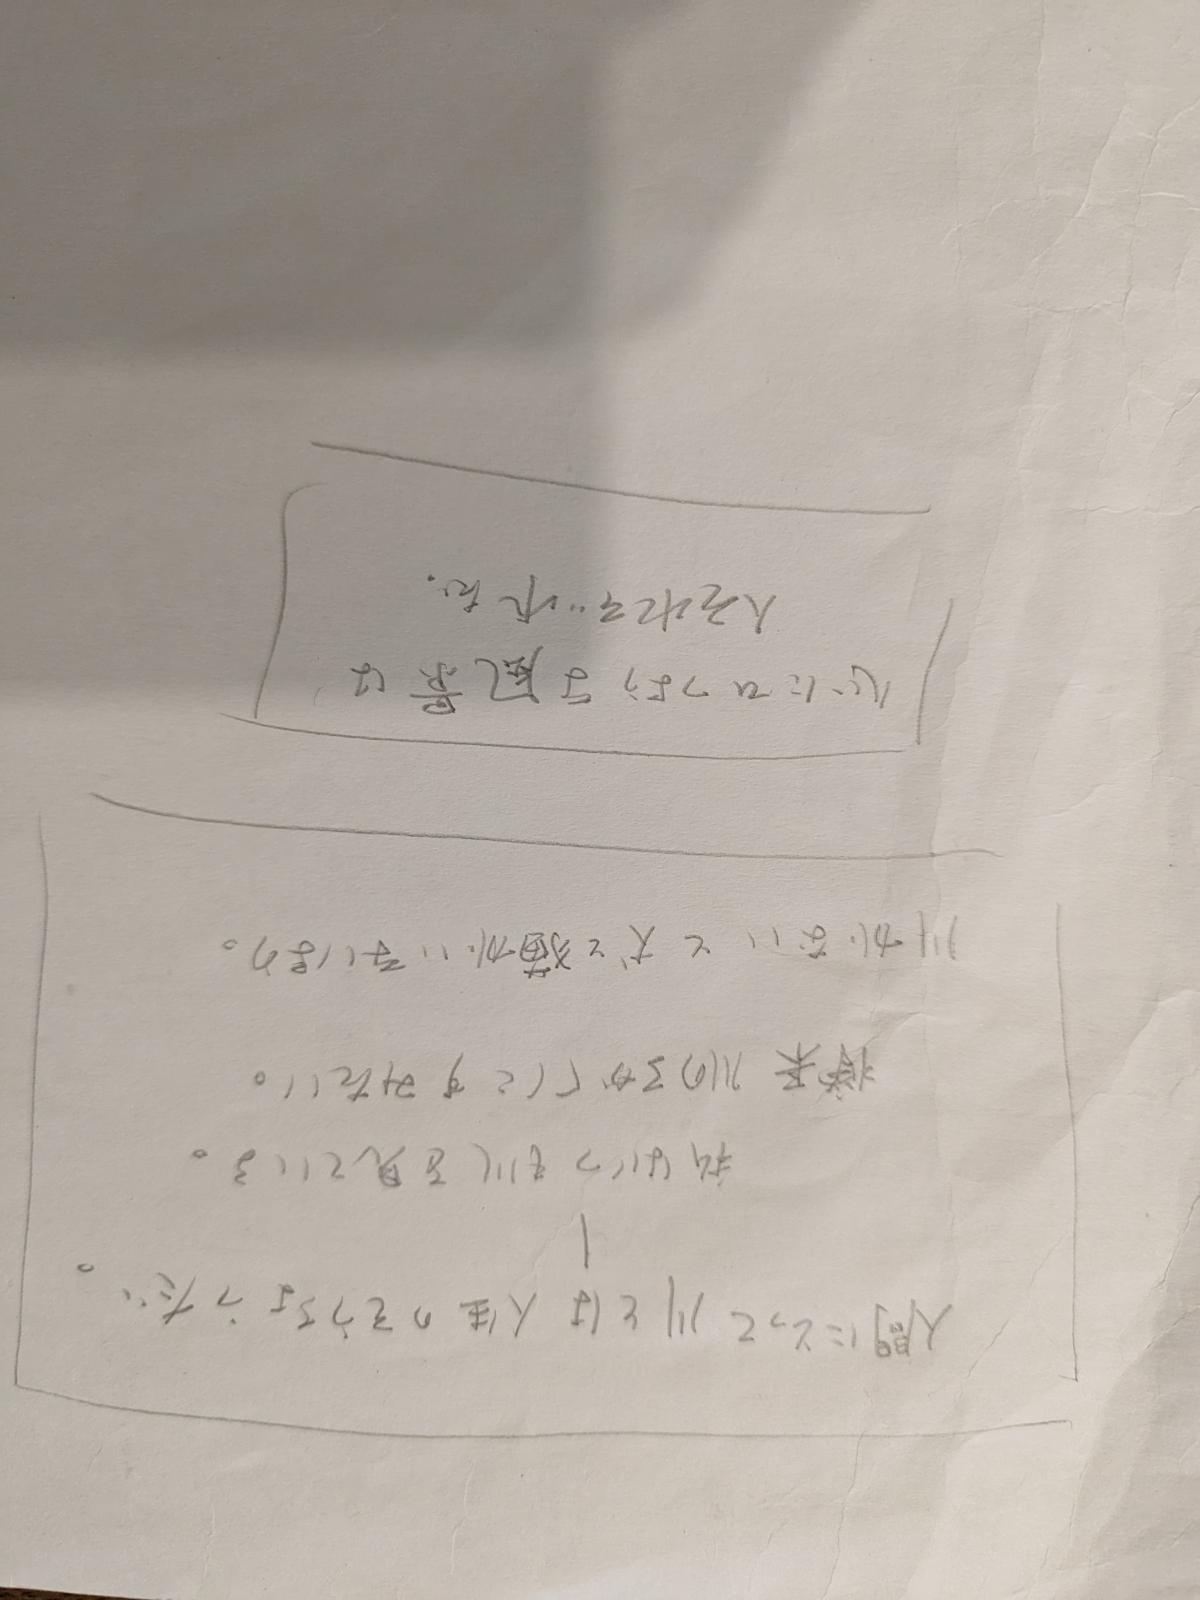 人間にとって川とは人生のようなっだ。
私はいつも川を見ている。
将来川のちかくにすみたい。
川がないと犬と猫がいなければ。
心にロつような風景は
人それぞれだ.